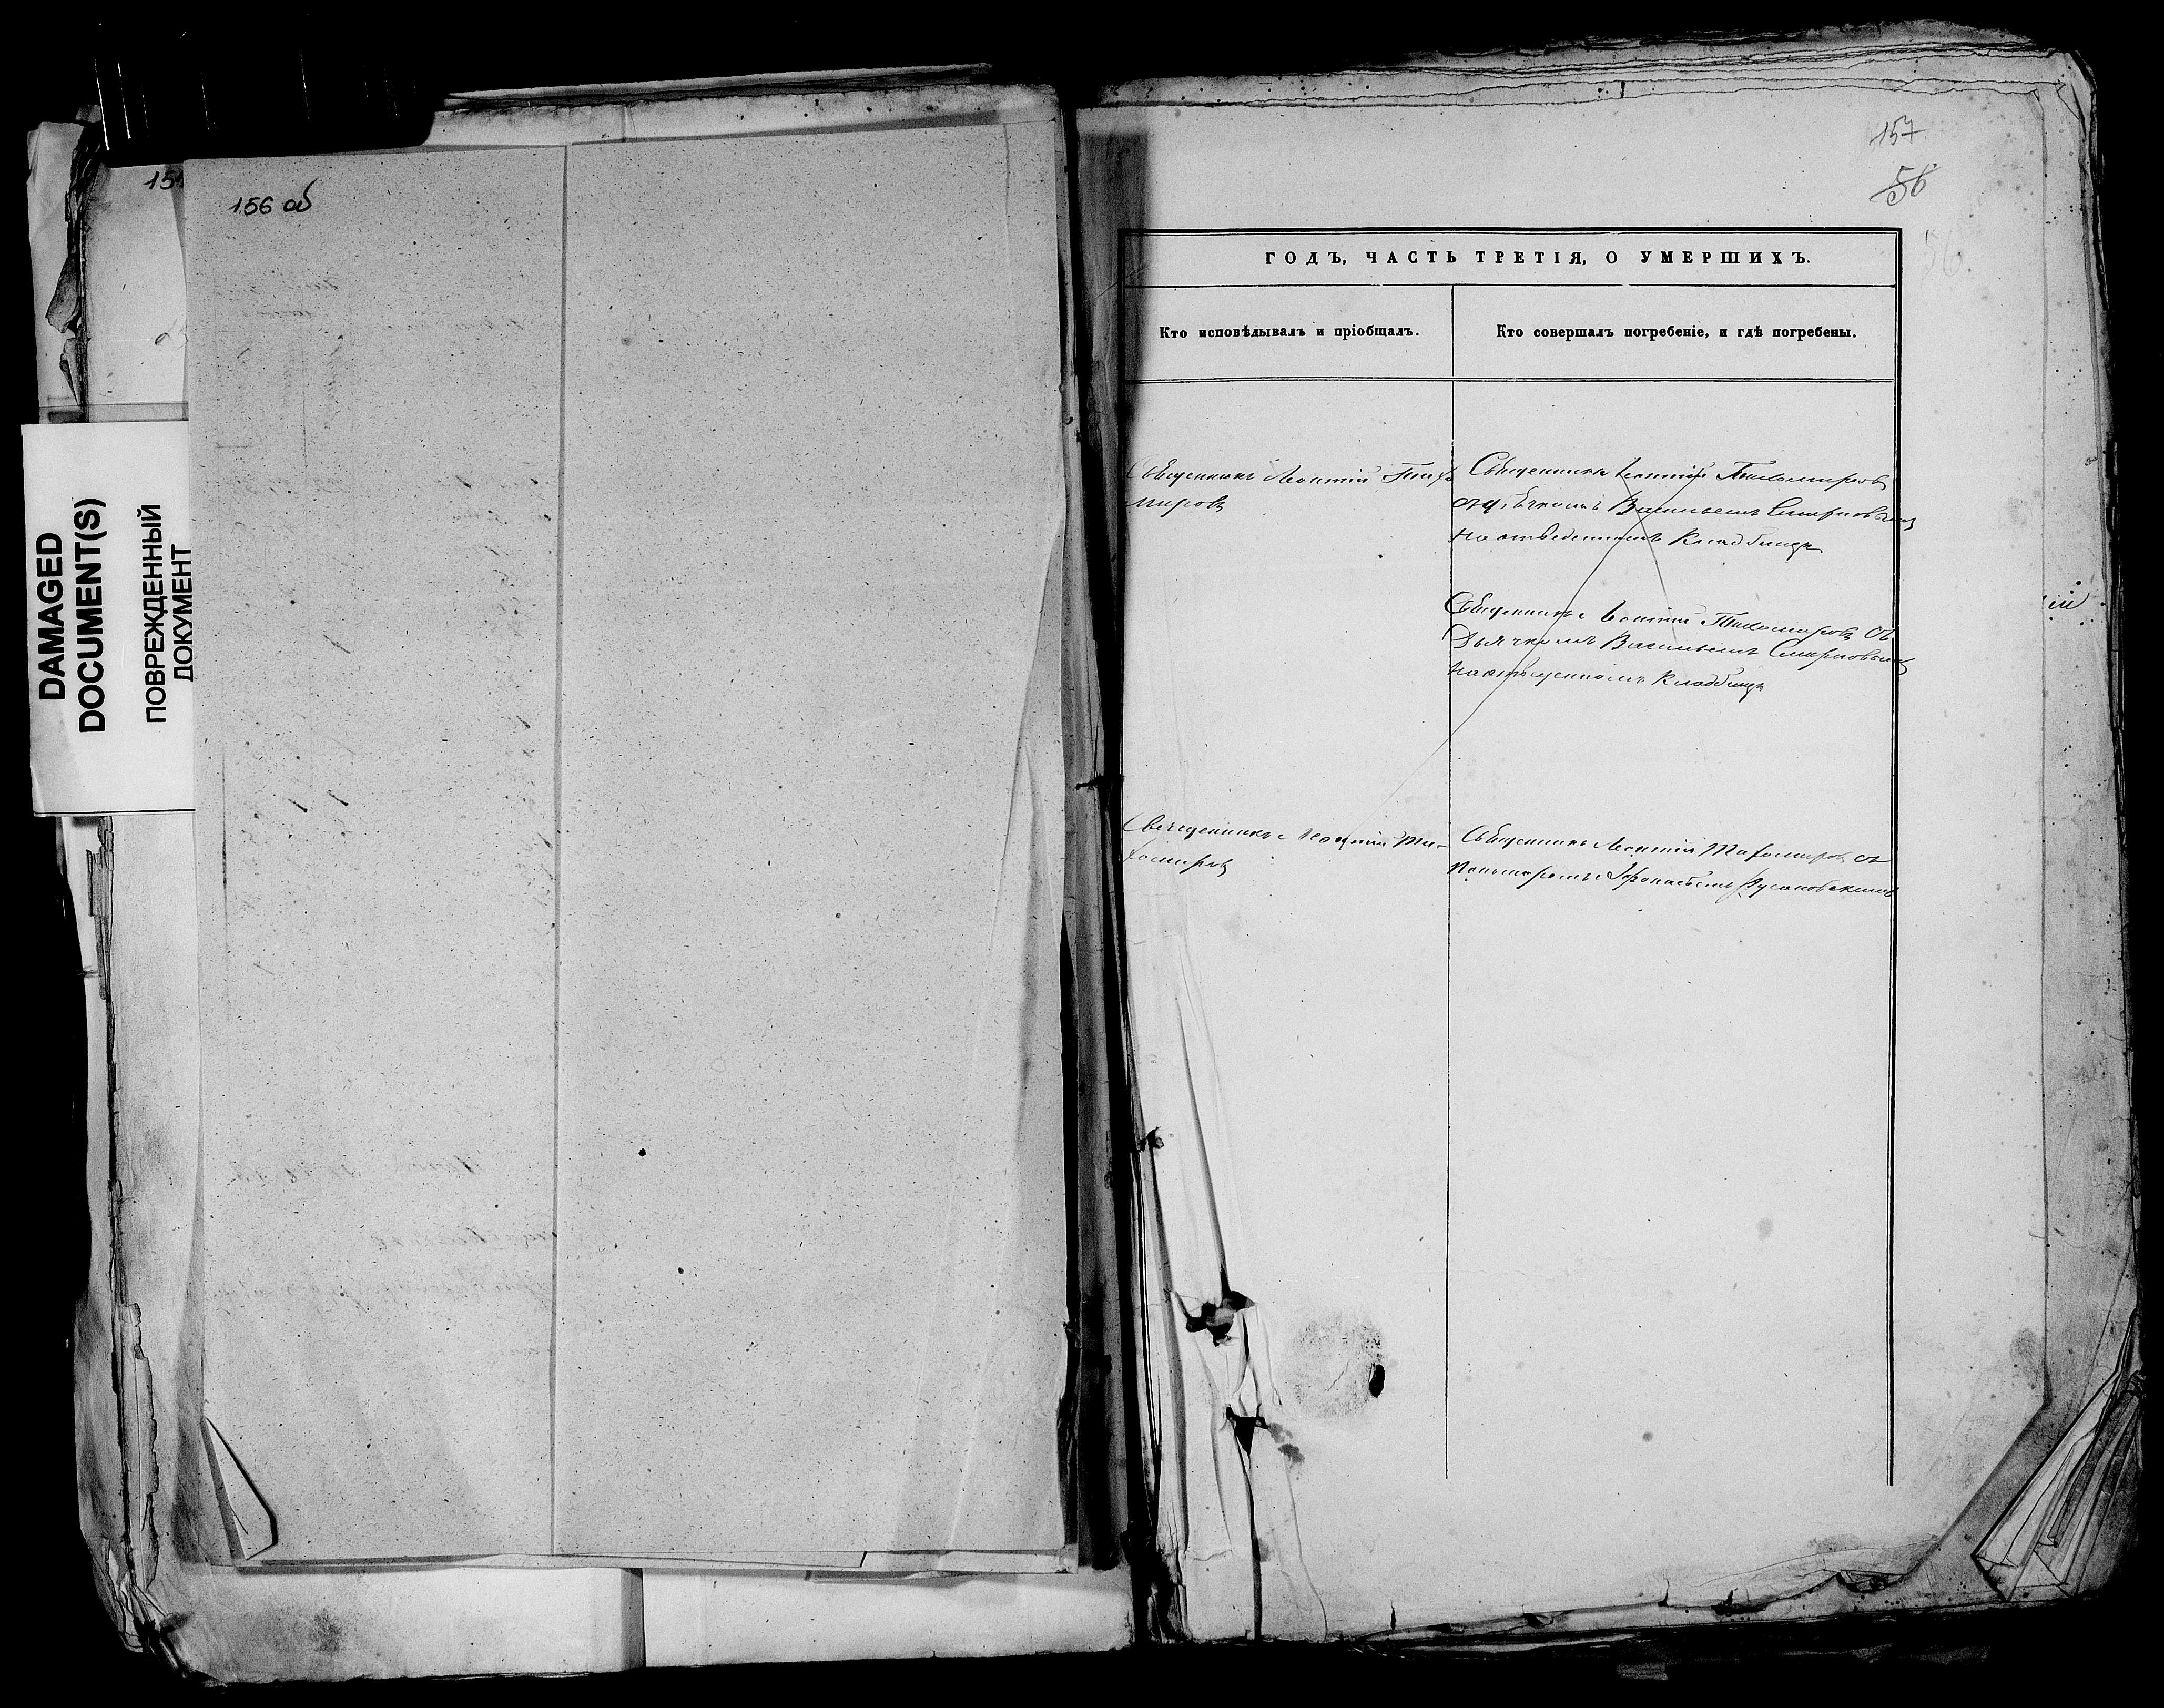 156 об
DAMAGED
DOCUMENT(S)
ПОВРЕЖДЕННЫЙ
ДОКУМЕНТ
157
56
56.
ГОДЪ, ЧАСТЬ ТРЕТІЯ, О УМЕРШИХЪ.
Кто исповѣдывалъ и пріобщалъ.
Кто совершалъ погребеніе, и гдѣ погребены.
Священникъ Леонтій Тихо
мировъ
Священникъ Леонтій Тихомировъ
Васильемъ Смирновымъ
на отведенномъ Кладбищѣ
Священникъ Леонтій Тихомировъ съ
Дьячкомъ Васильемъ Смирновымъ
на отведенномъ Кладбищѣ
Священникъ Леонтій Ти-
хомировъ
Священникъ Леонтій Тихомировъ съ
Пономаремъ Афонасьемъ Русановскимъ